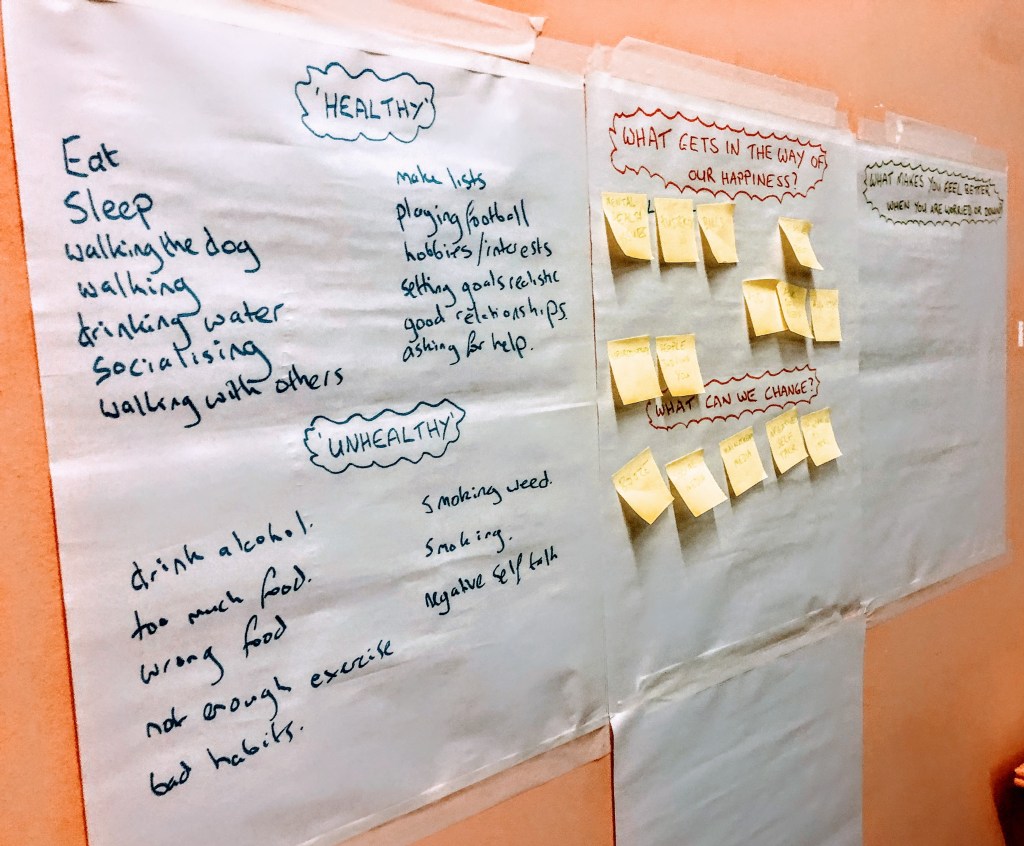 'HEALTHY'
Eat
Sleep
walking the dog
walking
drinking water
socialising
walking with others
make lists
playing football
hobbies/interests
setting goals realistic
good relationships.
asking for help.
'UNHEALTHY'
drink alcohol.
too much food.
wrong food
not enough exercise
bad habits.
smoking weed.
smoking.
negative self talk
WHAT GETS IN THE WAY OF
OUR HAPPINESS?
PEOPLE
WHAT CAN WE CHANGE?
MEDIA
NEGATIVE
SELF
TALK
WHAT MAKES YOU FEEL BETTER
WHEN YOU ARE WORRIED OR DOWN?